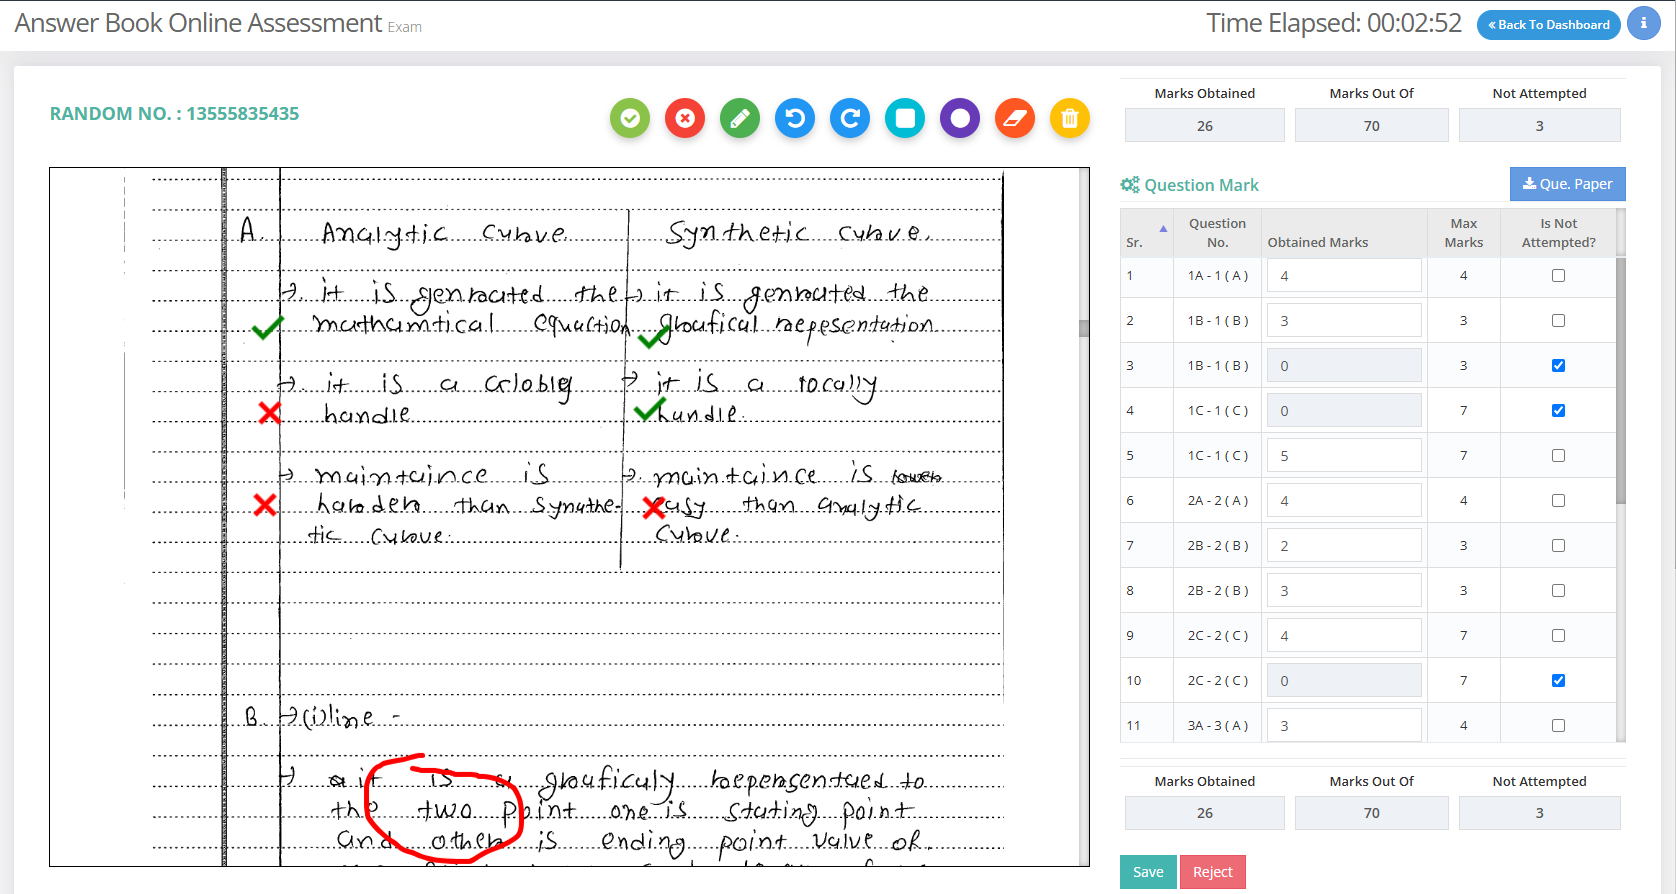 Answer Book Online Assessment Exam
Time Elapsed: 00:02:52
« Back To Dashboard
i
RANDOM NO. : 13555835435
A. Analytic Curve. Synthetic curve.
→ it is genrated the → it is genrated the
mathamtical equaction groufical repesentation
→ it is a Globly → it is a locally
handle handle.
→ maintaince is → maintaince is
harder than synthe- easy than analytic
tic curve. Curve.
B. → (i) line -
→ it is a groufically repersentaed to
the two point one is stating point
and other is ending point value of.
Marks Obtained Marks Out Of Not Attempted
26 70 3
Question Mark
Que. Paper
Sr. Question No. Obtained Marks Max Marks Is Not Attempted?
1 1A - 1 ( A ) 4 4
2 1B - 1 ( B ) 3 3
3 1B - 1 ( B ) 0 3
4 1C - 1 ( C ) 0 7
5 1C - 1 ( C ) 5 7
6 2A - 2 ( A ) 4 4
7 2B - 2 ( B ) 2 3
8 2B - 2 ( B ) 3 3
9 2C - 2 ( C ) 4 7
10 2C - 2 ( C ) 0 7
11 3A - 3 ( A ) 3 4
Marks Obtained Marks Out Of Not Attempted
26 70 3
Save Reject